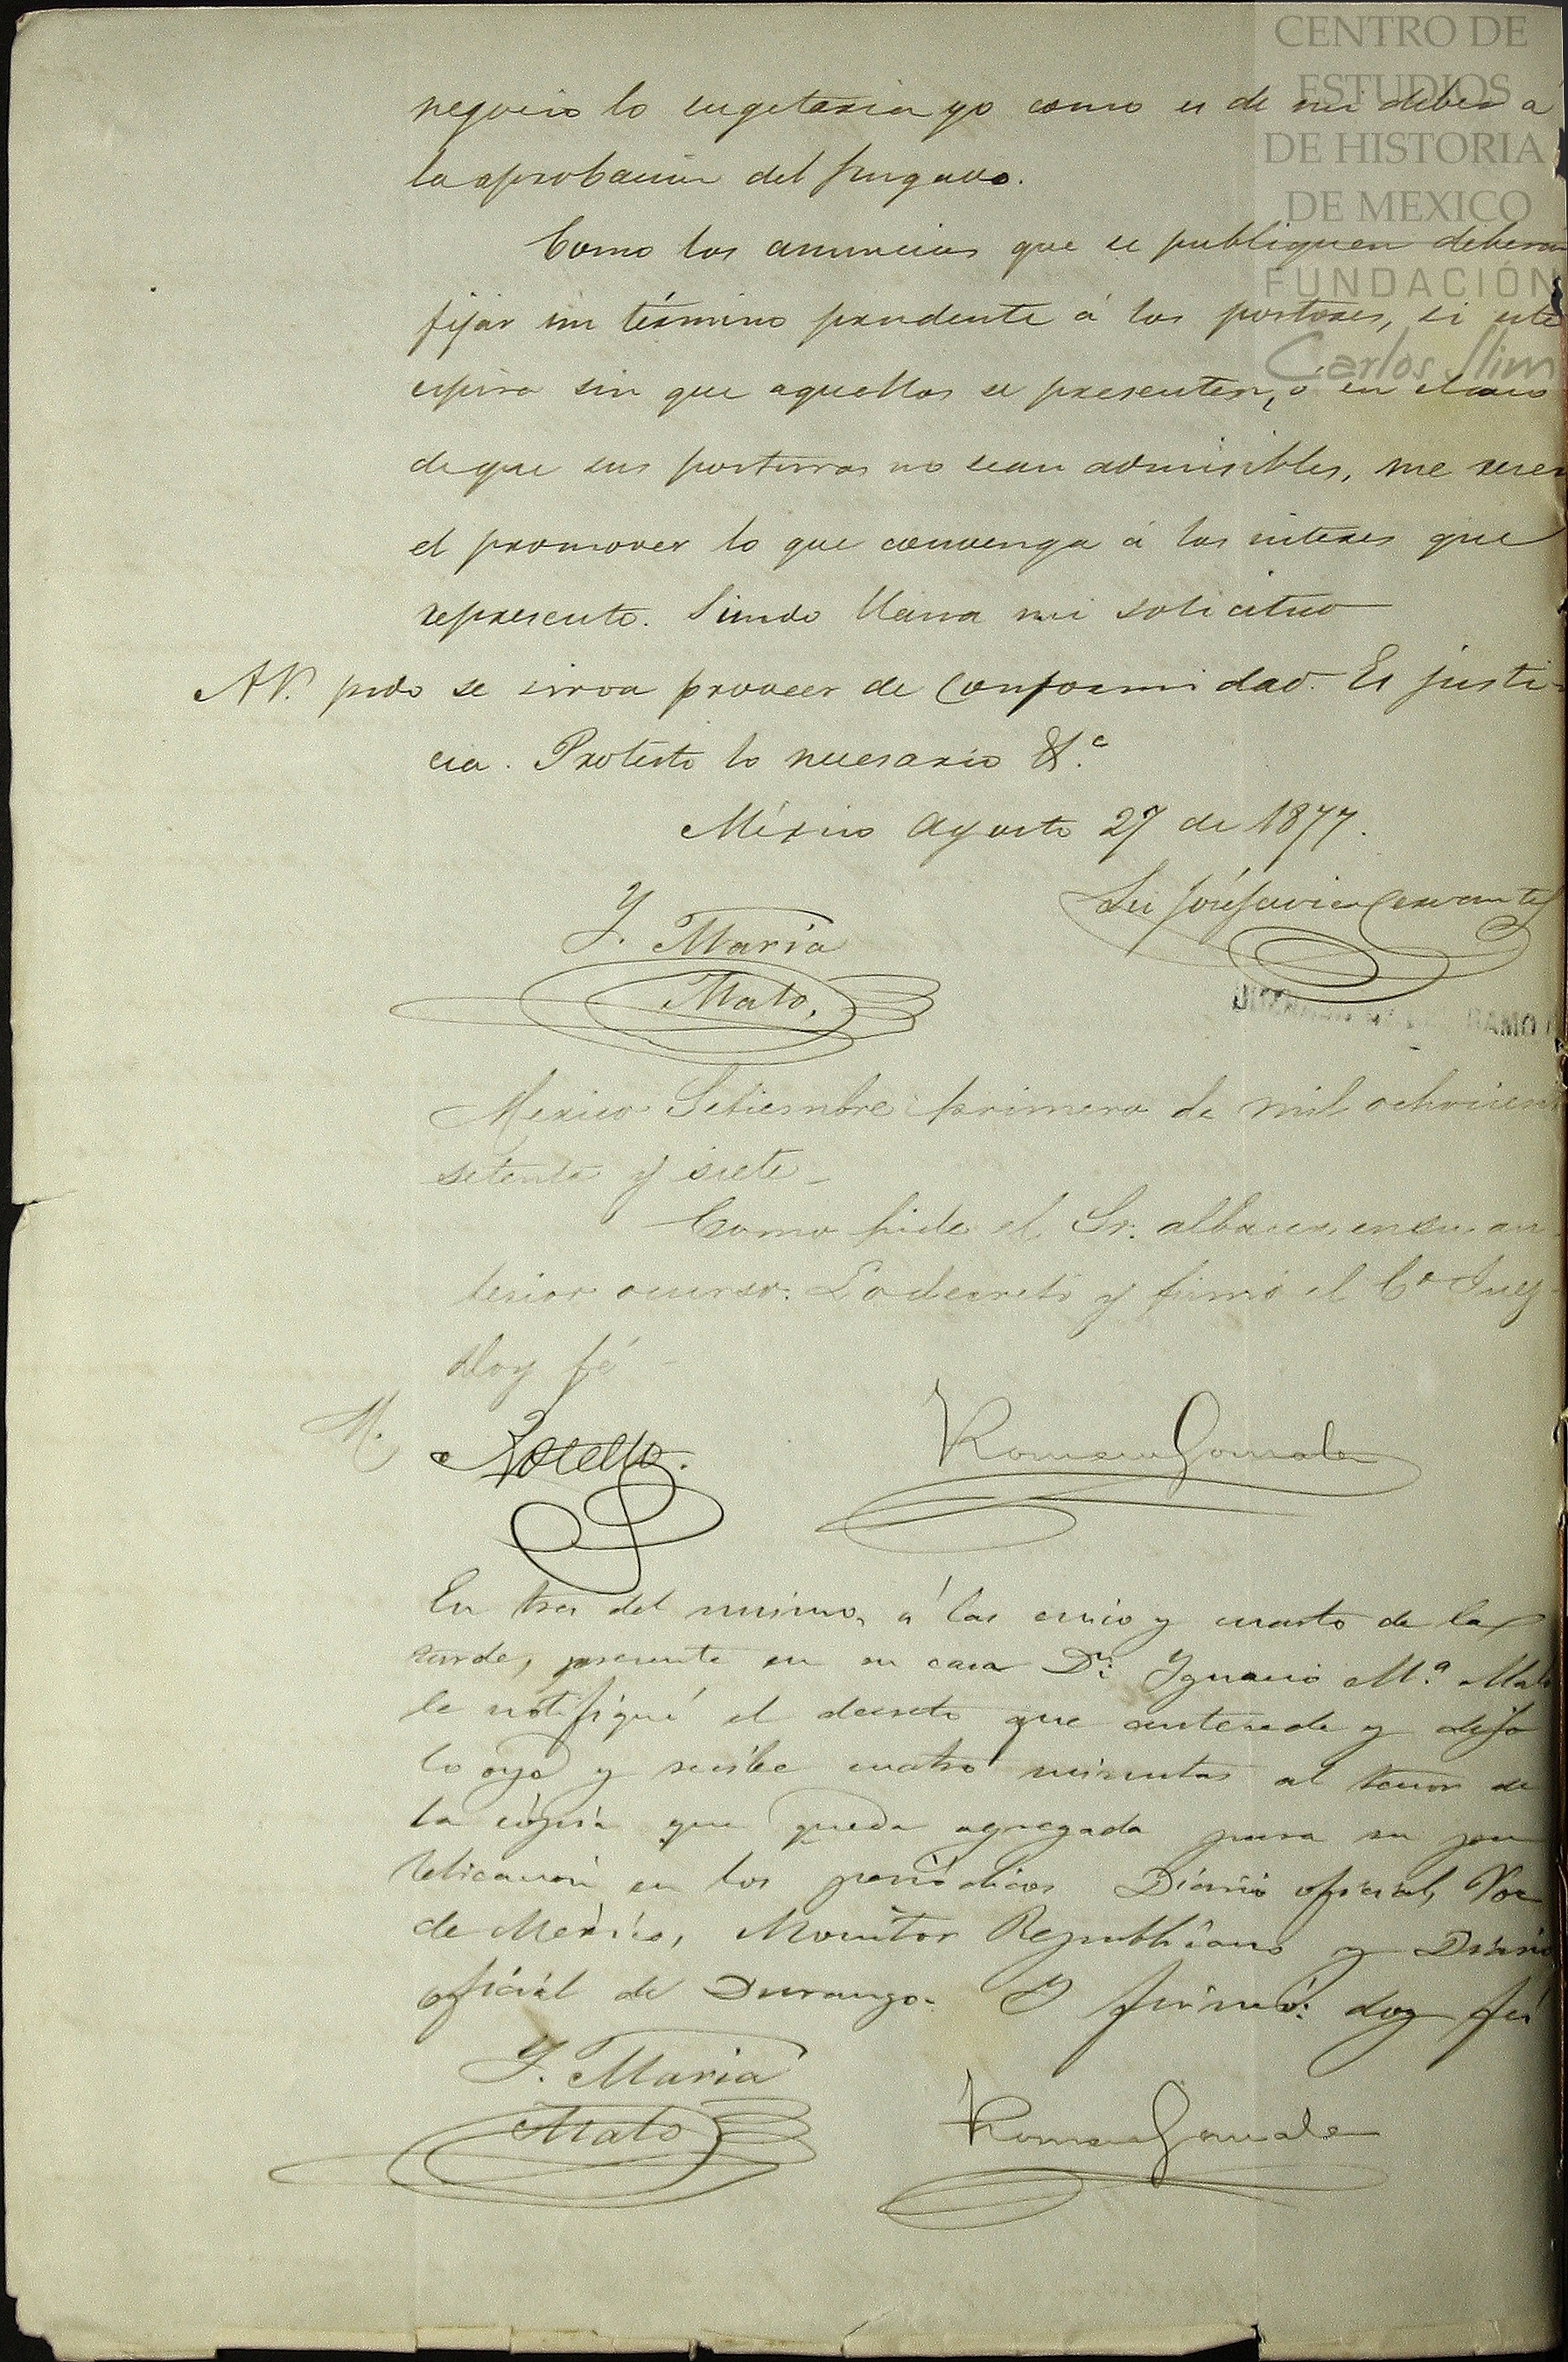 CENTRO DE
ESTUDIOS
DE HISTORIA
DE MEXICO
FUNDACIÓN
Carlos Slim
negocio lo sugetaria yo como es de mi deber a
la aprobacion del Juzgado.
Como los anuncios que se publiquen deberan
fijar un término prudente á los postores, si este
espira sin que aquellos se presenten, ó en el caso
de que sus posturas no sean admisibles, me reser
el promover lo que convenga á los interes que
represento. Siendo llana mi solicitud
A V. pido se sirva proveer de conformidad. Es justi-
cia. Protesto lo necesario &.ª
México Agosto 27 de 1877.
Lic José Javier Cervantes
Y. Maria
Malo.
RAMO
Mexico Setiembre primero de mil ochocient
setenta y siete_
Como pide el Sr. albacea en su an
terior ocurso. Lo decretó y firmó el C.º Juez
doy fé
M.
Romero Gonzalez
En tres del mismo, á las cinco y cuarto de la
tarde, presente en su casa Dn. Ygnacio M.ª Malo
le notifiqué el decreto que antecede y dijo
lo oye y recibe cuatro minutas al tenor de
la cópia que queda agregada para su pu
blicacion en los periódicos Diario oficial, Voz
de Mexico, Monitor Republicano y Diario
oficial de Durango. Y firmó: doy fé
Y. Maria
Malo
Romero Gonzalez